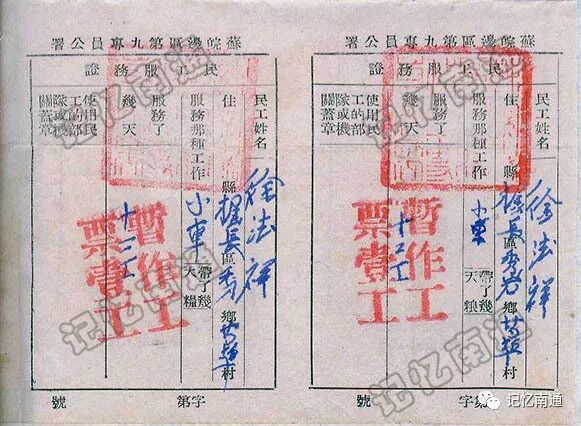 蘇皖邊區第九專員公署
民工服務證
民工姓名 徐法祥
住 縣 長區 鄉 村
服務那種工作 小車
帶了幾天粮
服務了幾天 十二工
使用民工的部隊或機關蓋章
暫作工票壹工
字 號
蘇皖邊區第九專員公署
民工服務證
民工姓名 徐法祥
住 縣 長區 鄉 村
服務那種工作 小車
帶了幾天糧
服務了幾天 十二工
使用民工的部隊或機關蓋章
暫作工票壹工
字第 號
记忆南通
记忆南通
记忆南通
记忆南通
记忆南通